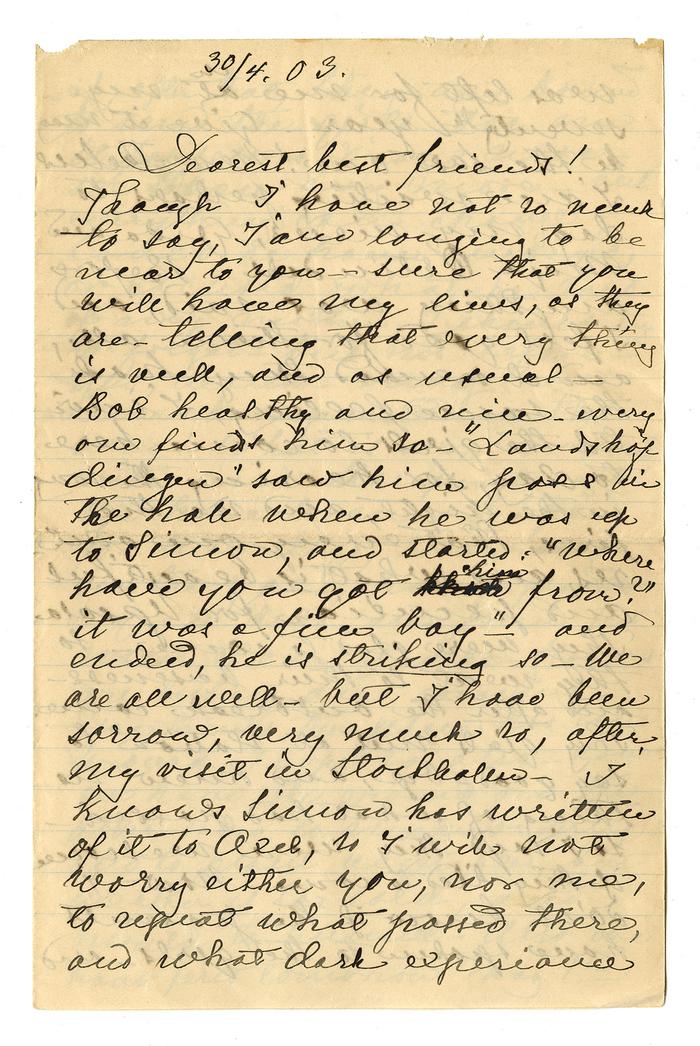 30/4. 03.
Dearest best friends!
Though I have not so much
to say, I am longing to be
near to you – sure that you
will have my lines, as they
are – telling that every thing
is well, and as usual –
Bob healthy and nice – every
one finds him so – "Landshöf
dingen" saw him pass in
the hall when he was up
to Simon, and started: "where
have you got him from?"
it was a fine boy" – and
endeed, he is striking so – We
are all well – but I have been
sorrow, very much so, after
my visit in Stockholm – I
knows Simon has written
of it to Axel, so I will not
worry either you, nor me,
to repeat what passed there,
and what dark experiance